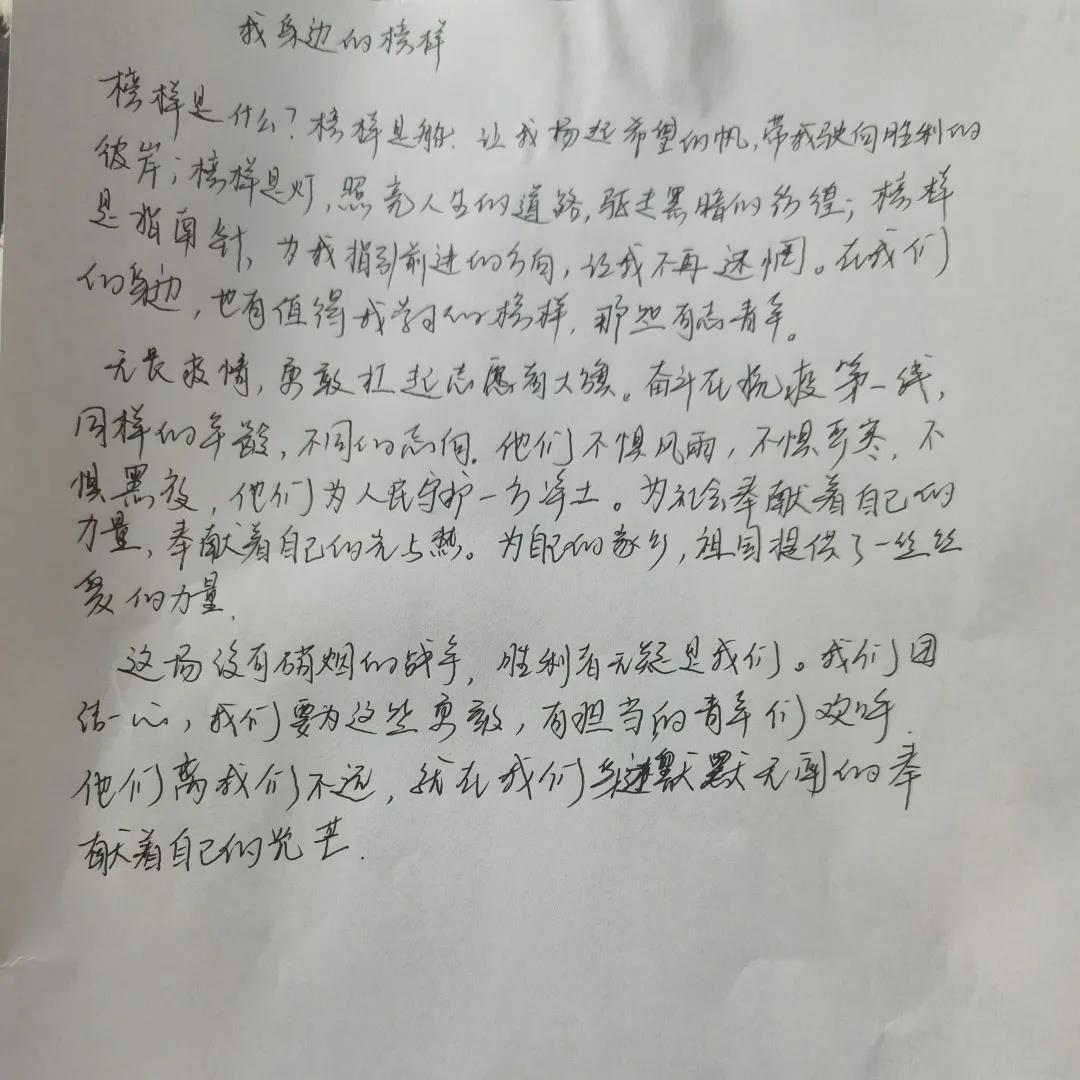 我身边的榜样
榜样是什么?榜样是船,让我扬起希望的帆,带我驶向胜利的
彼岸;榜样是灯,照亮人生的道路,驱走黑暗的彷徨;榜样
是指南针,为我指引前进的方向,让我不再迷惘。在我们
的身边,也有值得我学习的榜样,那些有志青年。
无畏疫情,勇敢扛起志愿者大旗。奋斗在抗疫第一线,
同样的年龄,不同的志向。他们不惧风雨,不惧严寒,不
惧黑夜,他们为人民守护一方净土。为社会奉献着自己的
力量,奉献着自己的光与热。为自己的家乡,祖国提供了一丝丝
爱的力量。
这场没有硝烟的战争,胜利者无疑是我们。我们团
结一心,我们要为这些勇敢,有担当的青年们欢呼
他们离我们不远,就在我们身边默默无闻的奉
献着自己的光芒.